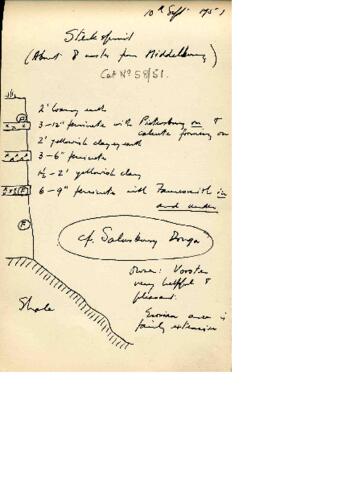 10th Sept. 1951
Sterkspruit
(About 8 miles from Middelburg)
Cat No 58/51.
2' loamy earth
3-12" ferricrete with Pietersburg on &
calcrete forming on
2' yellowish clayey earth
3-6" ferricrete
1½-2' yellowish clay
6-9" ferricrete with Fauresmith in
and under
F
F
F
cf. Salisbury Donga
Owner: Vorster
very helpful &
pleasant.
Erosion area is
fairly extensive
Shale